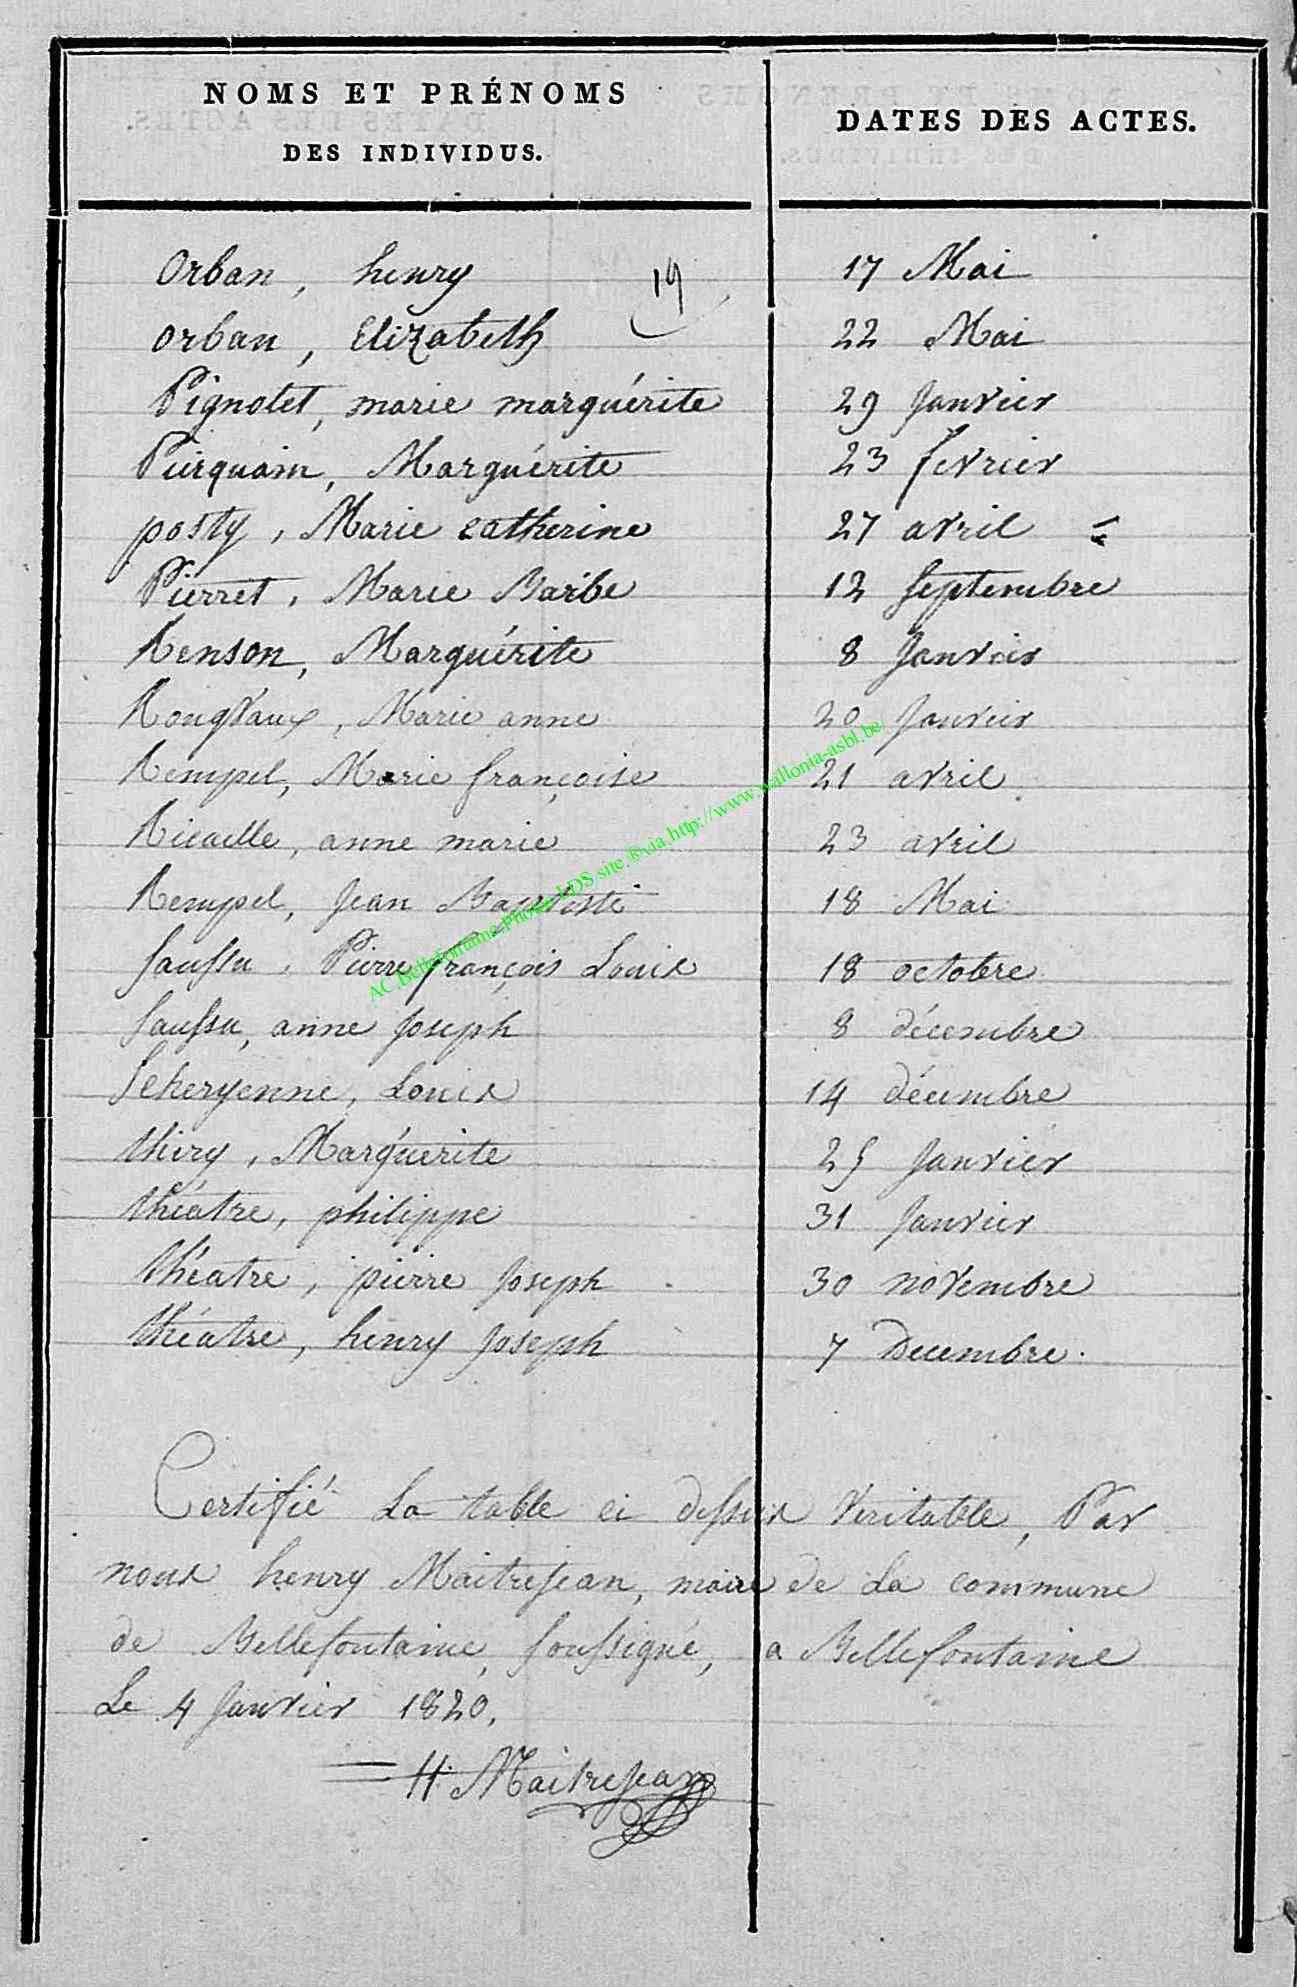 NOMS ET PRÉNOMS
DES INDIVIDUS.
DATES DES ACTES.
Orban, henry 17 Mai
19
orban, Elizabeth 22 Mai
Pignolet, marie marguérite 29 Janvier
Pierquain, Marguérite 23 fevrier
posty, Marie catherine 27 avril
Pierret, Marie Barbe 12 Septembre
Renson, Marguérite 8 Janvier
RongVaux, Marie anne 20 Janvier
Rempel, Marie françoise 21 avril
Ricaille, anne marie 23 avril
Rempel, Jean Baptiste 18 Mai
Saussu, Pierre françois Louis 18 octobre
Saussu, anne Joseph 8 décembre
Scheryenne, Louis 14 décembre
thiry, Marguérite 25 Janvier
théatre, philippe 31 Janvier
théatre, pierre Joseph 30 novembre
théatre, henry Joseph 7 Decembre.
AC Bellefontaine Photo LDS site © via http://www.wallonia-asbl.be/
Certifié La table ci dessus Veritable, Par
nous henry Maitrejean, maire de La commune
de Bellefontaine, soussigné, a Bellefontaine
Le 4 Janvier 1820.
H. Maitrejean